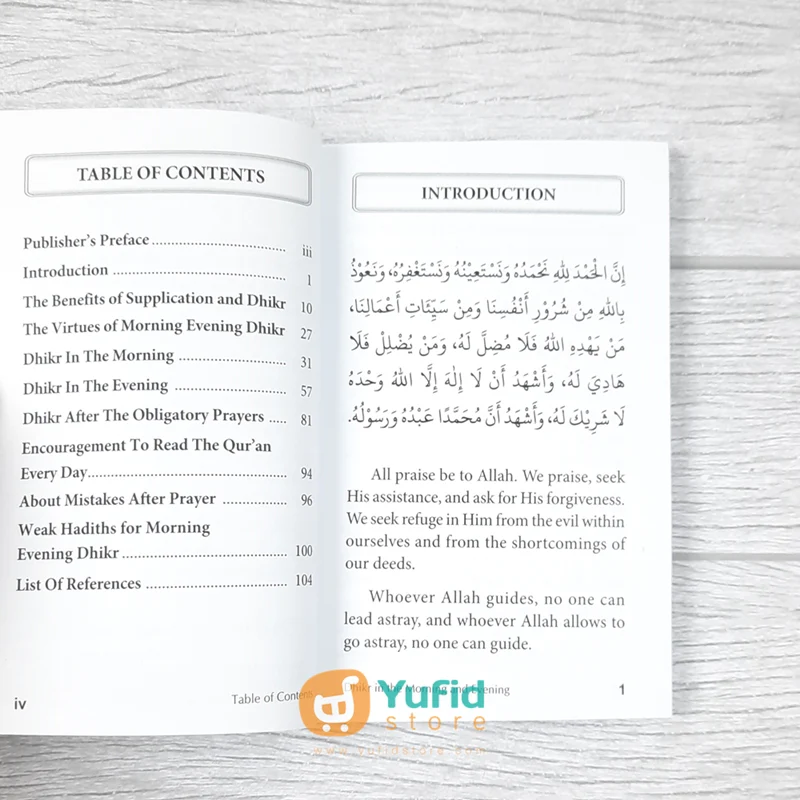 TABLE OF CONTENTS
Publisher's Preface.................................. iii
Introduction ........................................... 1
The Benefits of Supplication and Dhikr 10
The Virtues of Morning Evening Dhikr 27
Dhikr In The Morning ........................... 31
Dhikr In The Evening ............................ 57
Dhikr After The Obligatory Prayers ..... 81
Encouragement To Read The Qur'an
Every Day.................................................. 94
About Mistakes After Prayer ................ 96
Weak Hadiths for Morning
Evening Dhikr ......................................... 100
List Of References ................................... 104
iv
Table of Contents
INTRODUCTION
إِنَّ الْحَمْدَ لِلَّهِ نَحْمَدُهُ وَنَسْتَعِيْنُهُ وَنَسْتَغْفِرُهُ، وَنَعُوْذُ
بِاللهِ مِنْ شُرُوْرِ أَنْفُسِنَا وَمِنْ سَيِّئَاتِ أَعْمَالِنَا،
مَنْ يَهْدِهِ اللهُ فَلَا مُضِلَّ لَهُ، وَمَنْ يُضْلِلْ فَلَا
هَادِيَ لَهُ، وَأَشْهَدُ أَنْ لَا إِلٰهَ إِلَّا اللهُ وَحْدَهُ
لَا شَرِيْكَ لَهُ، وَأَشْهَدُ أَنَّ مُحَمَّدًا عَبْدُهُ وَرَسُوْلُهُ.
All praise be to Allah. We praise, seek
His assistance, and ask for His forgiveness.
We seek refuge in Him from the evil within
ourselves and from the shortcomings of
our deeds.
Whoever Allah guides, no one can
lead astray, and whoever Allah allows to
go astray, no one can guide.
Dhikr in the Morning and Evening
1
Yufid
store
www.yufidstore.com